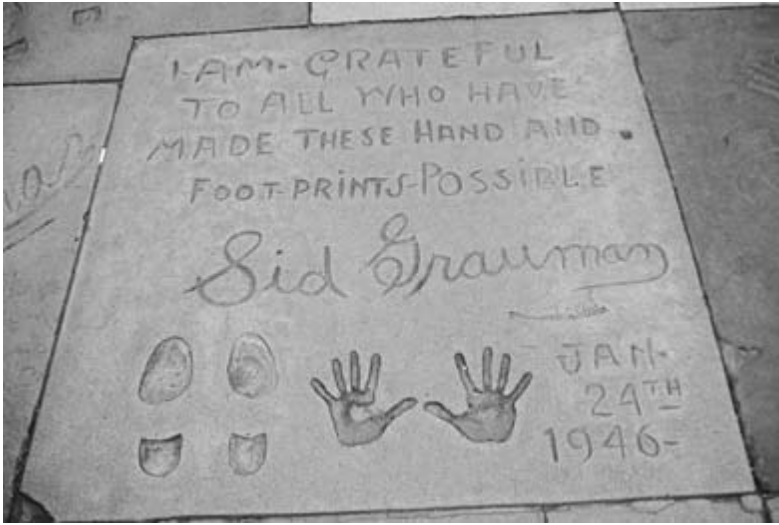 I-AM-GRATEFUL
TO ALL WHO HAVE
MADE THESE HAND AND
FOOT-PRINTS-POSSIBLE
Sid Grauman
JAN-
24TH
1946-